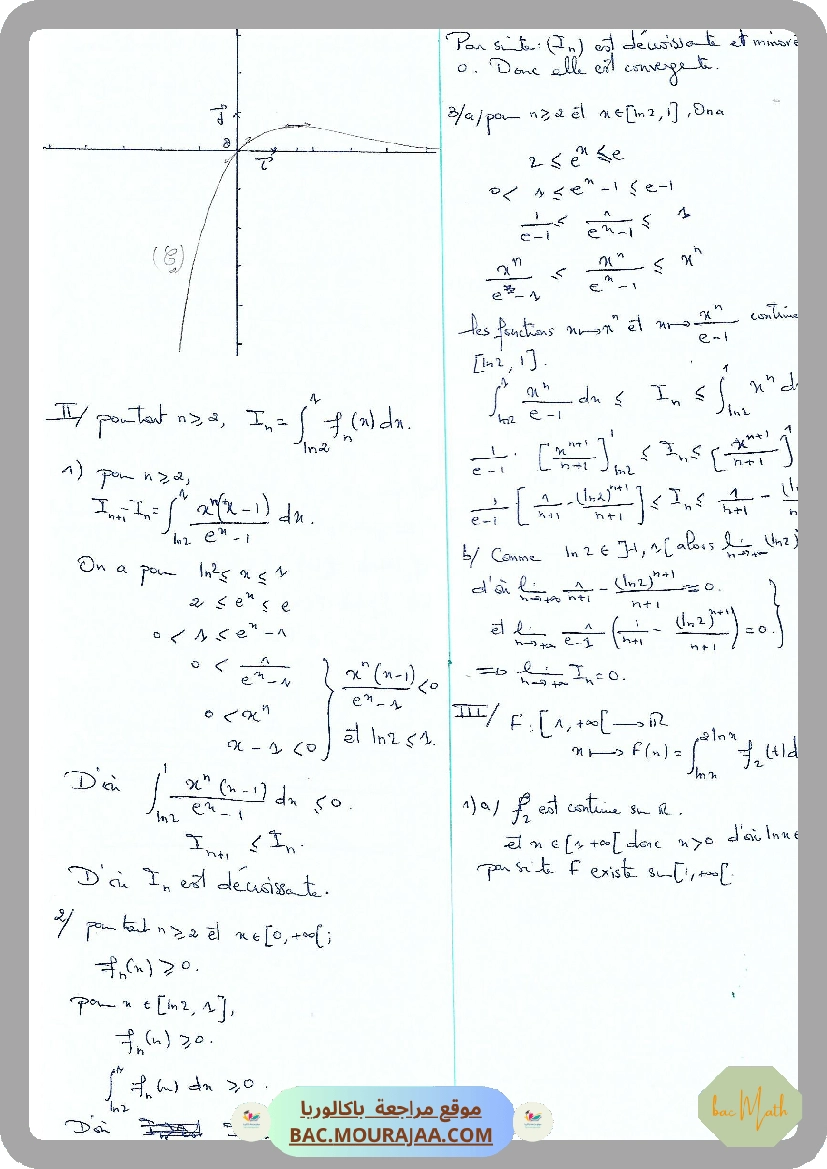 j
O
i
(C)
II/ pour tout n ≥ 2, I_n = ∫_{ln2}^{1} f_n(x) dx.
1) pour n ≥ 2,
I_{n+1} - I_n = ∫_{ln2}^{1} x^n(x-1)/(e^x-1) dx.
On a pour ln2 ≤ x ≤ 1
2 ≤ e^x ≤ e
0 < 1 ≤ e^x - 1
0 < 1/(e^x-1)
0 < x^n
x - 1 < 0
} x^n(x-1)/(e^x-1) < 0
et ln2 ≤ 1.
D'où ∫_{ln2}^{1} x^n(x-1)/(e^x-1) dx ≤ 0.
I_{n+1} ≤ I_n.
D'où I_n est décroissante.
2/ pour tout n ≥ 2 et x ∈ [0, +∞[ ;
f_n(x) ≥ 0.
pour x ∈ [ln2, 1],
f_n(x) ≥ 0.
∫_{ln2}^{1} f_n(x) dx ≥ 0.
D'où
Par suite : (I_n) est décroissante et minoré
0. Donc elle est convergente.
3/a/ pour n ≥ 2 et x ∈ [ln2, 1], On a
2 ≤ e^x ≤ e
0 < 1 ≤ e^x - 1 ≤ e-1
1/(e-1) ≤ 1/(e^x-1) ≤ 1
x^n/(e-1) ≤ x^n/(e^x-1) ≤ x^n
les fonctions x ↦ x^n et x ↦ x^n/(e-1) continue
[ln2, 1].
∫_{ln2}^{1} x^n/(e-1) dx ≤ I_n ≤ ∫_{ln2}^{1} x^n d
1/(e-1) · [x^{n+1}/(n+1)]_{ln2}^{1} ≤ I_n ≤ [x^{n+1}/(n+1)]^{1}
1/(e-1) [1/(n+1) - (ln2)^{n+1}/(n+1)] ≤ I_n ≤ 1/(n+1) - (l
b/ Comme ln2 ∈ ]-1, 1[ alors lim_{n→+∞} (ln2)
d'où lim_{n→+∞} 1/(n+1) - (ln2)^{n+1}/(n+1) = 0.
et lim_{n→+∞} 1/(e-1) (1/(n+1) - (ln2)^{n+1}/(n+1)) = 0. }
⟹ lim_{n→+∞} I_n = 0.
III/ F : [1, +∞[ ⟶ ℝ
x ⟼ F(x) = ∫_{ln x}^{2 ln x} f_2(t) d
1) a/ f_2 est continue sur ℝ.
et x ∈ [1, +∞[ donc x > 0 d'où ln x ∈
par suite F existe sur [1, +∞[.
موقع مراجعة باكالوريا
BAC.MOURAJAA.COM
bac Math